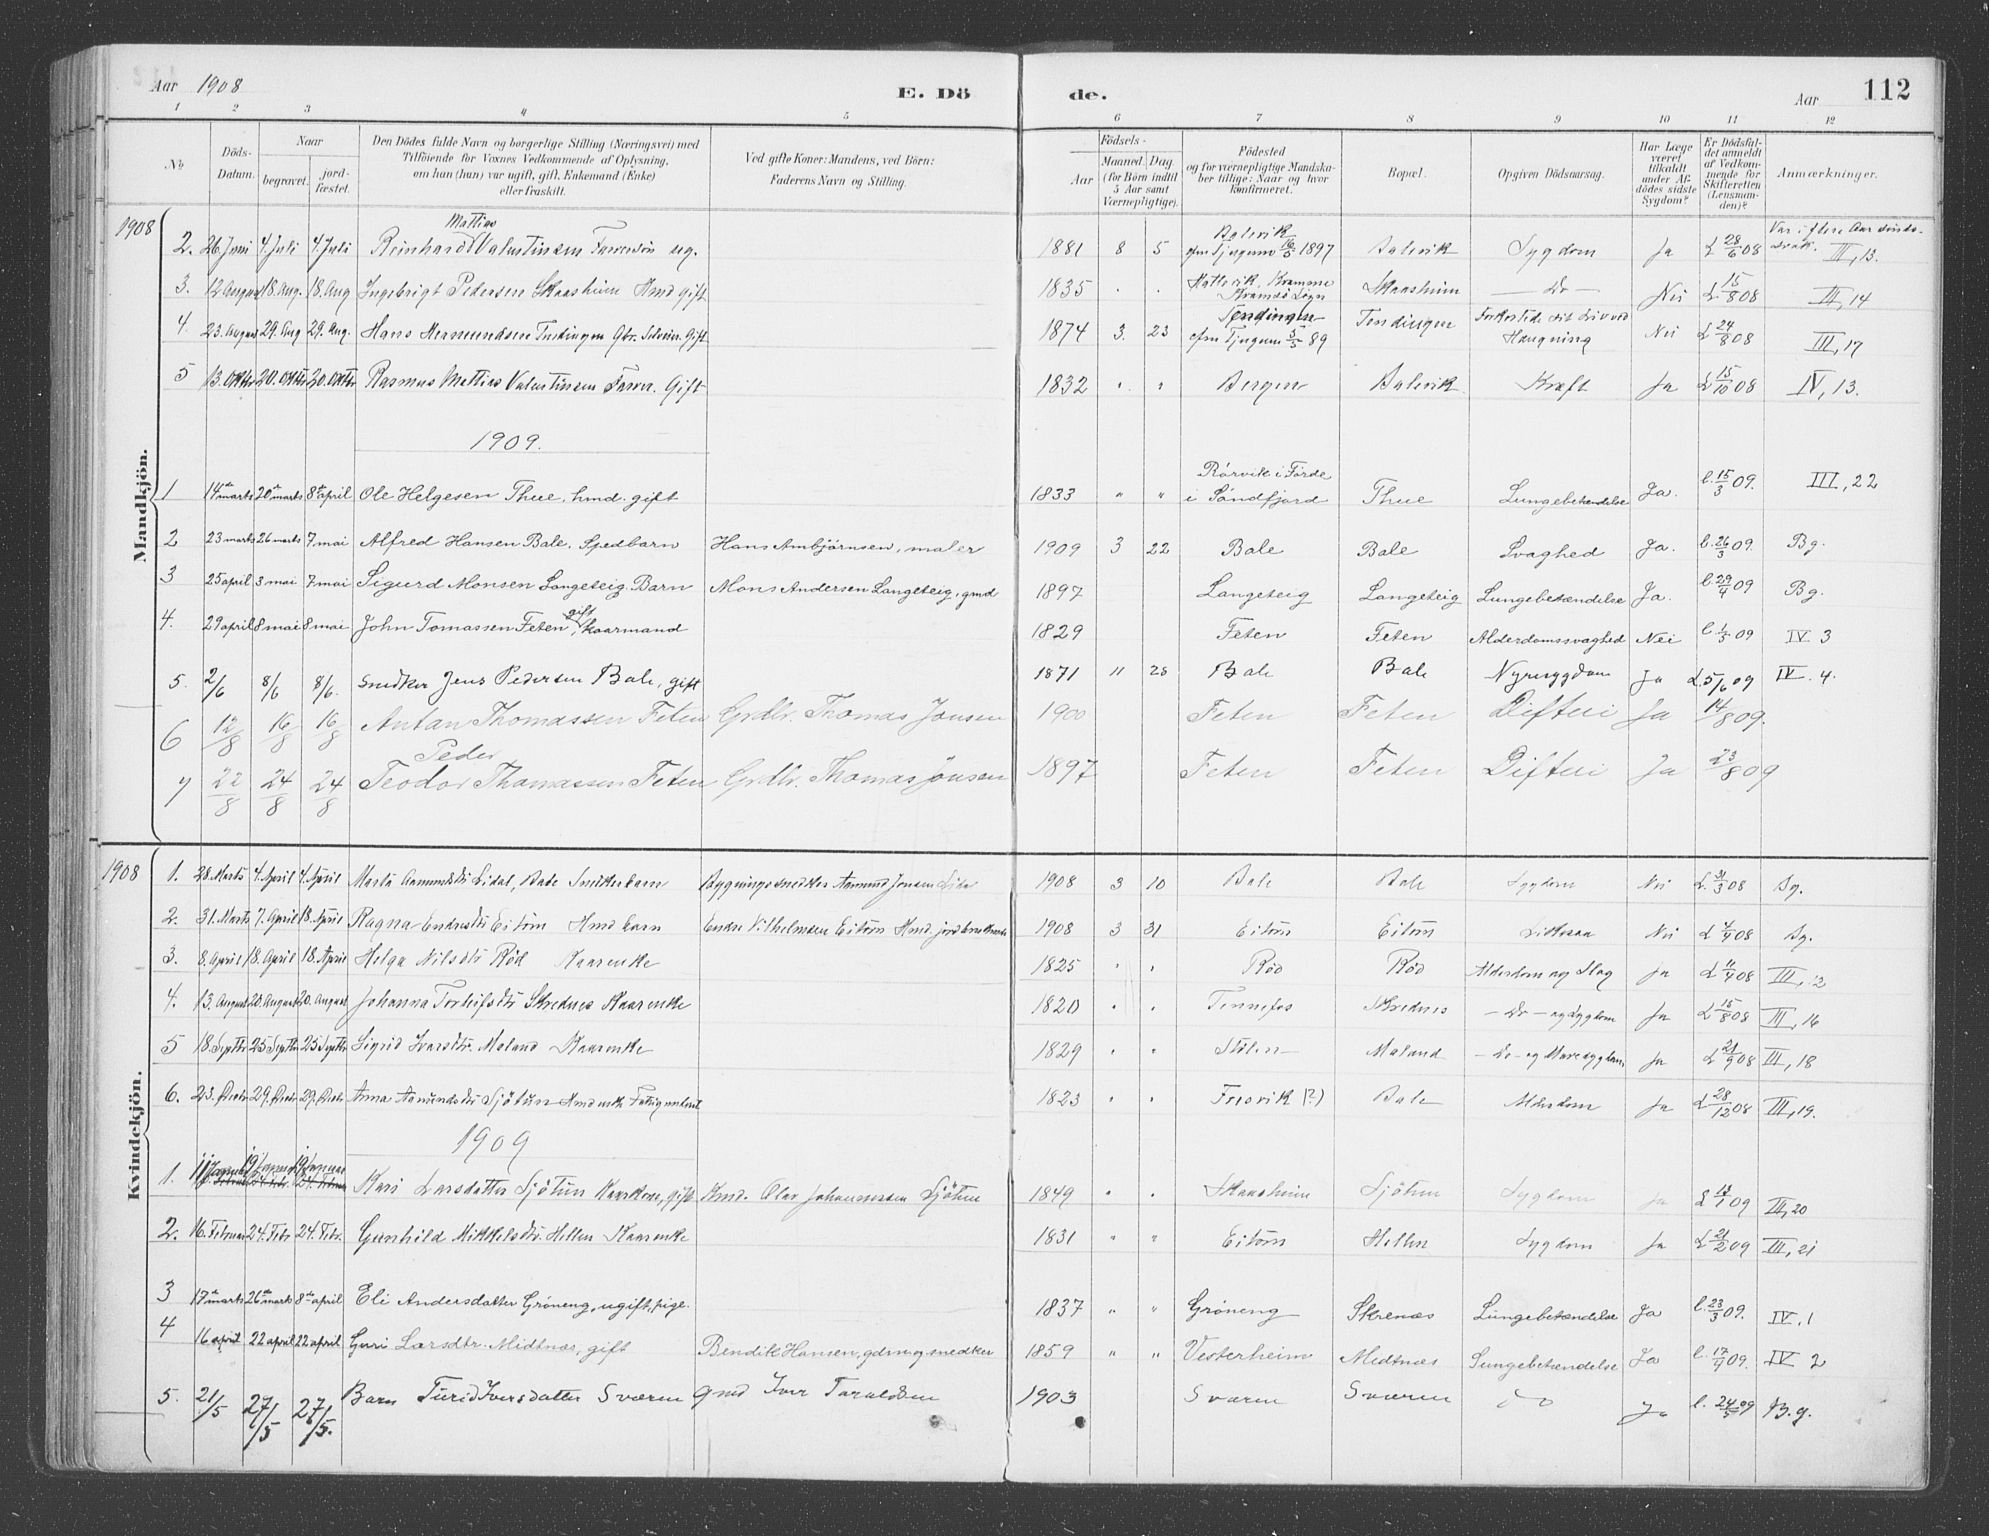 Aar 1908 E. Dö de. Aar 112
1 2 3 4 5 6 7 8 9 10 11 12
No Döds-Datum. Naar begravet. jord-fæstet. Den Dödes fulde Navn og borgerlige Stilling (Næringsvei) med Tilföiende for Voxnes Vedkommende af Oplysning, om han (hun) var ugift, gift, Enkemand (Enke) eller fraskilt. Ved gifte Koner: Mandens, ved Börn: Faderens Navn og Stilling. Födsels- Aar Maaned. Dag. (for Börn indtil 5 Aar samt Værnepligtige). Födested og for værnepligtige Mandskaber tillige: Naar og hvor konfirmeret. Bopæl. Opgiven Dödsaarsag. Har Læge været tilkaldt under Afdödes sidste Sygdom? Er Dödsfaldet anmeldt af Vedkommende for Skifteretten (Lensmanden)? Anmærkninger.
Mandkjön.
1908
2. 26 Juni 4 Juli 4. Juli Reinhard Mattias Valentinsen ug. 1881 8 5 Balevik Tjugum 16/5 1897 Balevik Sygdom Ja L 28/6 08 Var i flere Aar sindssvak. III, 13.
3. 12 August 18. Aug. 18. Aug Ingebrigt Pedersen Skaasheim Hmd Gift 1835 " " Skaasheim — Do — Nei L 15/8 08 III, 14
4. 23. August 29. Aug 29. Aug. Hans Mermundsen Tendingen Gift 1874 3. 23 Tendingen Tjugum 5/5 89 Tendingen Forkortede sit Liv ved Hængning Nei L 24/8 08 III, 17
5 13. Oktbr 20. Oktbr 20. Oktbr Rasmus Mattias Valentinsen Gift 1832 " " Bergen Balevik Kræft Ja L 15/10 08 IV, 13.
1909.
1 14de marts 20de marts 8de april Ole Helgesen Thue, hmd. gift 1833 " " Rörvik i Förde i Söndfjord Thue Lungebetændelse Ja. l. 15/3 09. III, 22
2 23 marts 26 marts 7 mai Alfred Hansen Bale, Spedbarn Hans Ambjörnsen, maler 1909 3 22 Bale Bale Svaghed Ja. l. 26/3 09. Bg.
3 25 april 3 mai 7 mai Sigurd Monsen Langeteig, Barn Mons Andersen Langeteig, gmd 1897 Langeteig Langeteig Lungebetændelse Ja. l. 29/4 09 Bg.
4. 29 april 8 mai 8 mai John Tomassen Feten, gift kaarmand 1829 Feten Feten Alderdomssvaghed Nei l. 1/5 09 IV 3
5. 2/6 8/6 8/6. Snedker Jens Pedersen Bale, gift 1871 11 28 Bale Bale Nyresygdom Ja L. 5/6 09 IV. 4.
6 12/8 16/8 16/8 Antan Thomassen Feten Grdbr. Thomas Jonsen 1900 Feten Feten Difteri Ja 14/8 09.
7 22/8 24/8 24/8 Peder Teodor Thomassen Feten Grdbr. Thomas Jonsen 1897 Feten Feten Difteri Ja 23/8 09
Kvindekjön.
1908
1. 28. Marts 4. April 4. April Marta Aamundsdtr Lidal, Bale Snedkerbarn Bygningssnedker Aamund Jonsen 1908 3 10 Bale Bale Sygdom Nei L. 31/3 08 Bg.
2. 31. Marts 7. April 18. April Ragna Endresdtr Eitorn Hmd barn Endre Vilhelmsen Eitorn Hmd. 1908 3 31 Eitorn Eitorn Nei L 4/4 08 Bg.
3. 8. April 18. April 18. April Helga Nilsdtr Röd Kaarenke 1825 " " Röd Röd Alderdom og Slag Ja L 11/4 08 III, 12
4. 13. August 20. August 20. August Johanna Torleifsdtr Skrednes Kaarenke 1820 " " Skrednes — Do — og Sygdom Ja L 15/8 08 III, 16
5 18. Septbr 25 Septbr 25 Septbr Sigrid Ivarsdtr. Maland Kaarenke 1829 " " Stölen Maland — Do — og Ja L 21/9 08 III, 18
6. 23. Decbr 29. Decbr 29. Decbr Anna Aamundsdtr Sjötun Hmdenke 1823 " " Fresvik (?) Bale Alderdom Ja L 28/12 08 III, 19.
1909
1. 11 Januar 19 Januar 19 Januar Kari Larsdatter Sjötun Kaarkone, gift Kmd. Olav Johannessen Sjötun 1849 " " Skaasheim Sjötun Sygdom Ja L 13/1 09 III, 20
2. 16. Februar 24. Febr 24. Febr. Gunhild Mikkelsdtr. Hellen Kaarenke 1831 " " Eitorn Hellen Sygdom Ja L 21/2 09 III, 21
3 17de marts 26de marts 8de april Eli Andersdatter Gröneng, ugift, pige. 1837 " " Gröneng Skrenæs Lungebetændelse Ja l. 23/3 09. IV. 1
4 16 april 22 april 22 april Guri Larsdtr. Midtnæs, gift Bendik Hansen, gdrm og snedker 1859 " " Vesterheim Midtnæs Lungebetændelse Ja l. 17/4 09. IV 2
5. 21/5 27/5 27/5. Barn Turid Iversdatter Sværen gmd Iver Taraldsen 1903 Sværen Sværen Do Ja l. 24/5 09 B.g.